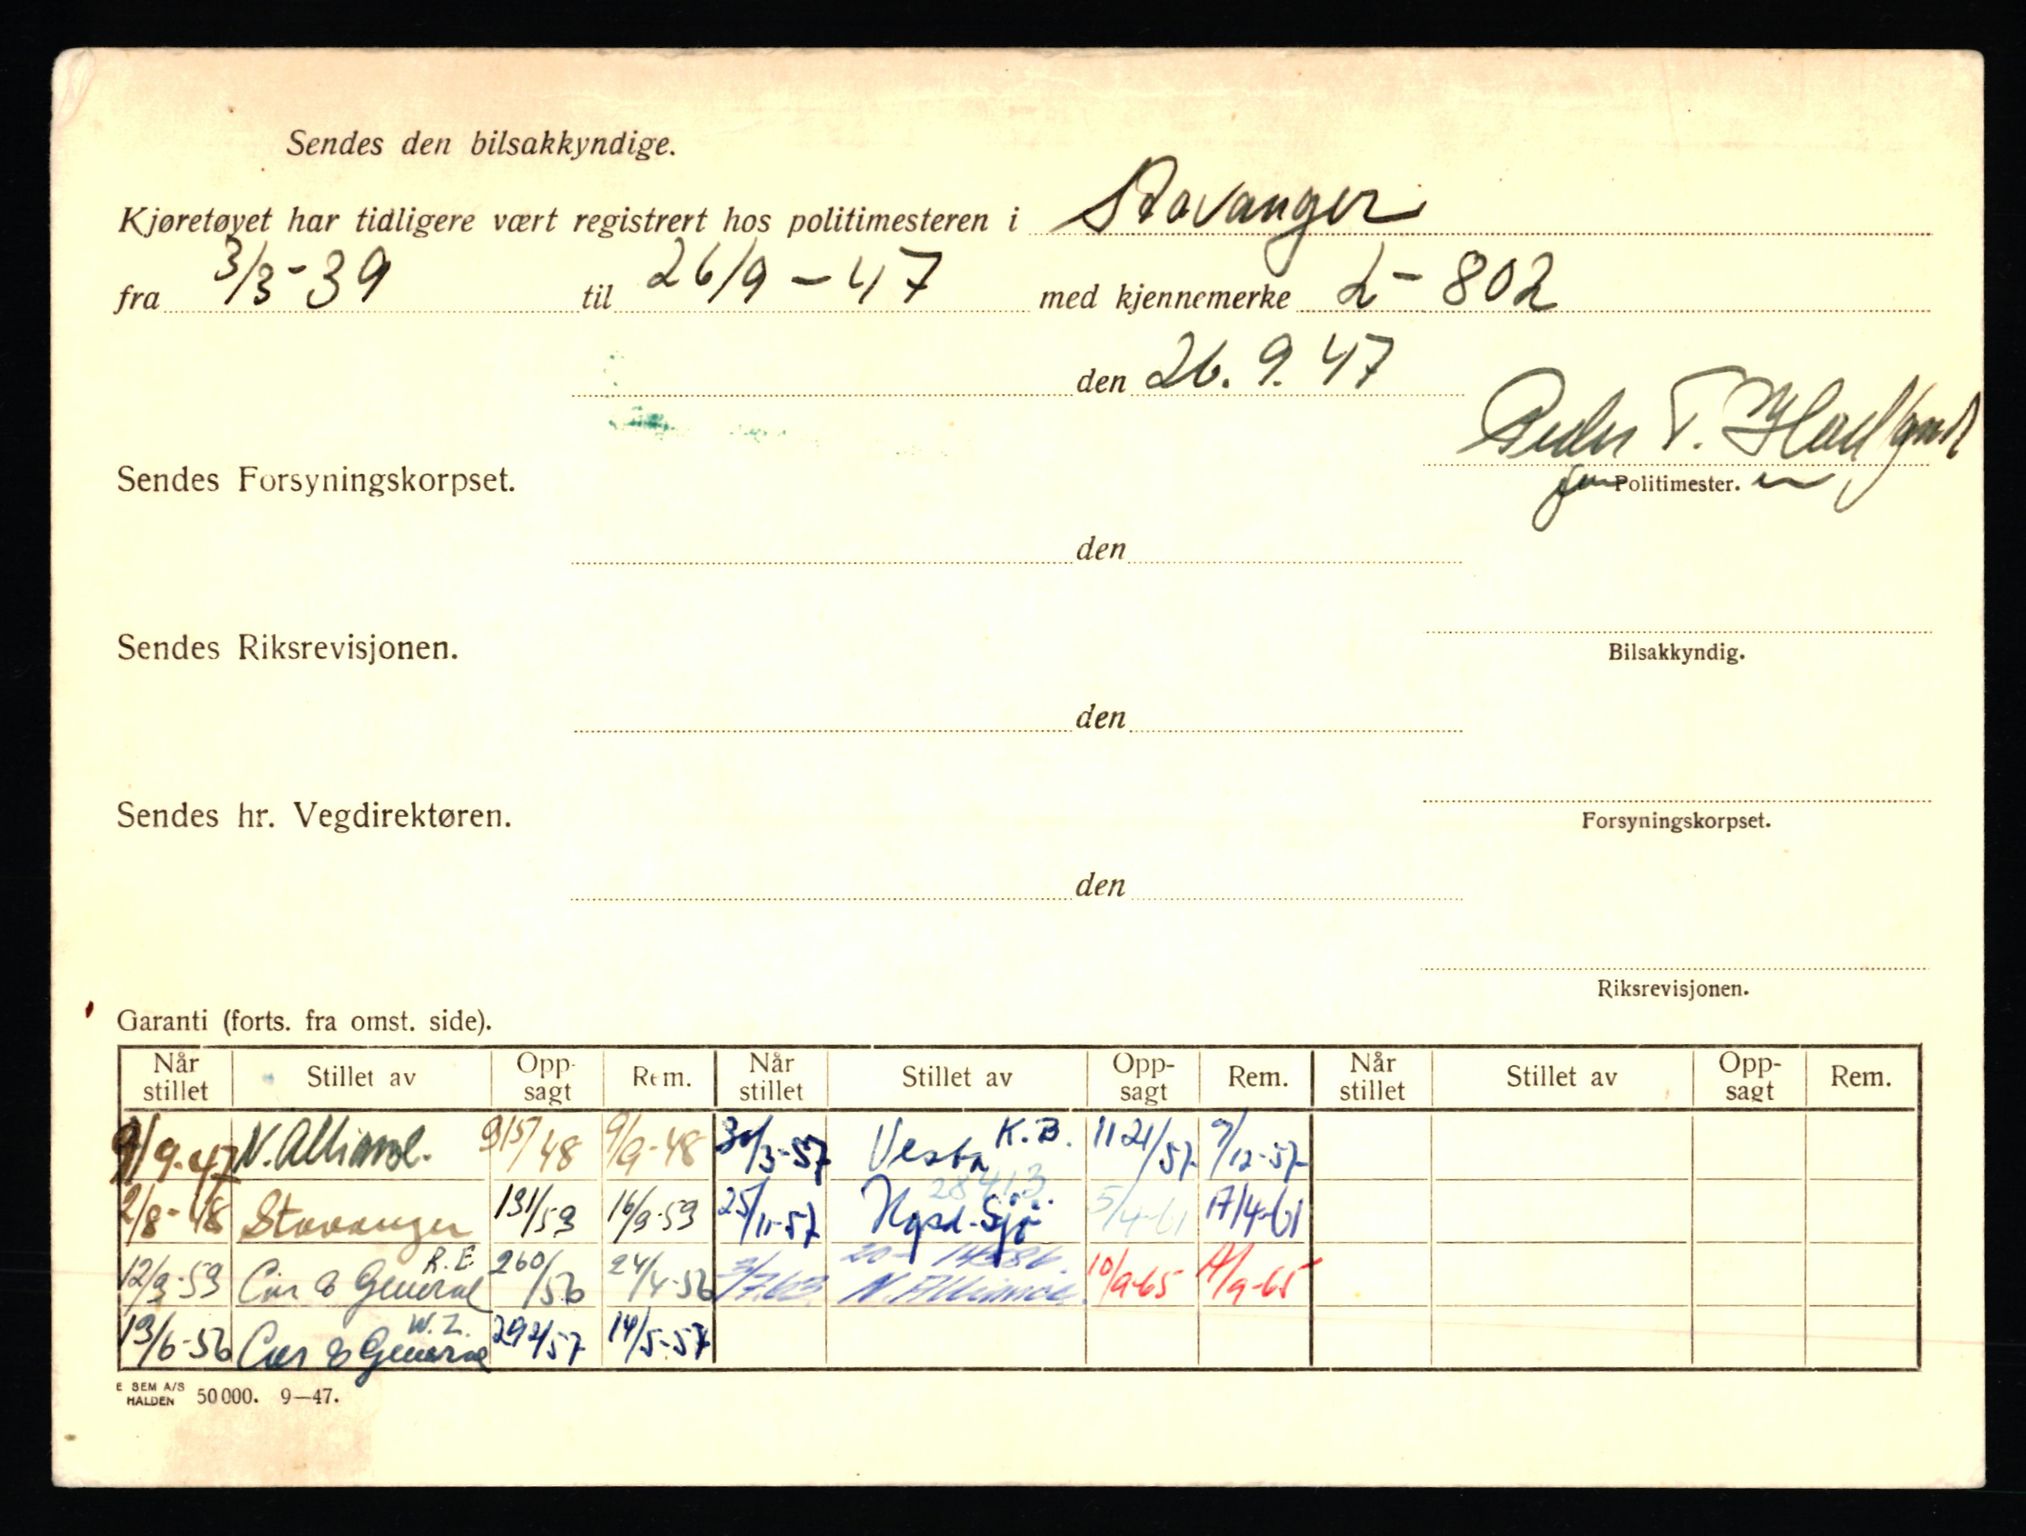 Sendes den bilsakkyndige.
Kjøretøyet har tidligere vært registrert hos politimesteren i Stavanger
fra 3/3-39 til 26/9-47 med kjennemerke L-802
den 26.9.47
Peder T.
Sendes Forsyningskorpset.
Politimester.
den
Sendes Riksrevisjonen.
Bilsakkyndig.
den
Sendes hr. Vegdirektøren.
Forsyningskorpset.
den
Riksrevisjonen.
Garanti (forts. fra omst. side).
Når stillet Stillet av Opp-sagt Rem. Når stillet Stillet av Opp-sagt Rem. Når stillet Stillet av Opp-sagt Rem.
9/9-47 N. Allianse. 9/9-48 Vesta K.B. 1121/57 9/12-57
2/8-48 Stavanger 131/53 16/9-53 25/11-57 28413. Ngsd. Sjø 5/4-61 17/4-61
12/9-53 Car & General R.E. 260/56 24/4-56 3/7.63 N. Allianse. 10/9-65
13/6-56 Car & General W.Z. 292/57 14/5-57
E SEM A/S HALDEN 50000. 9—47.